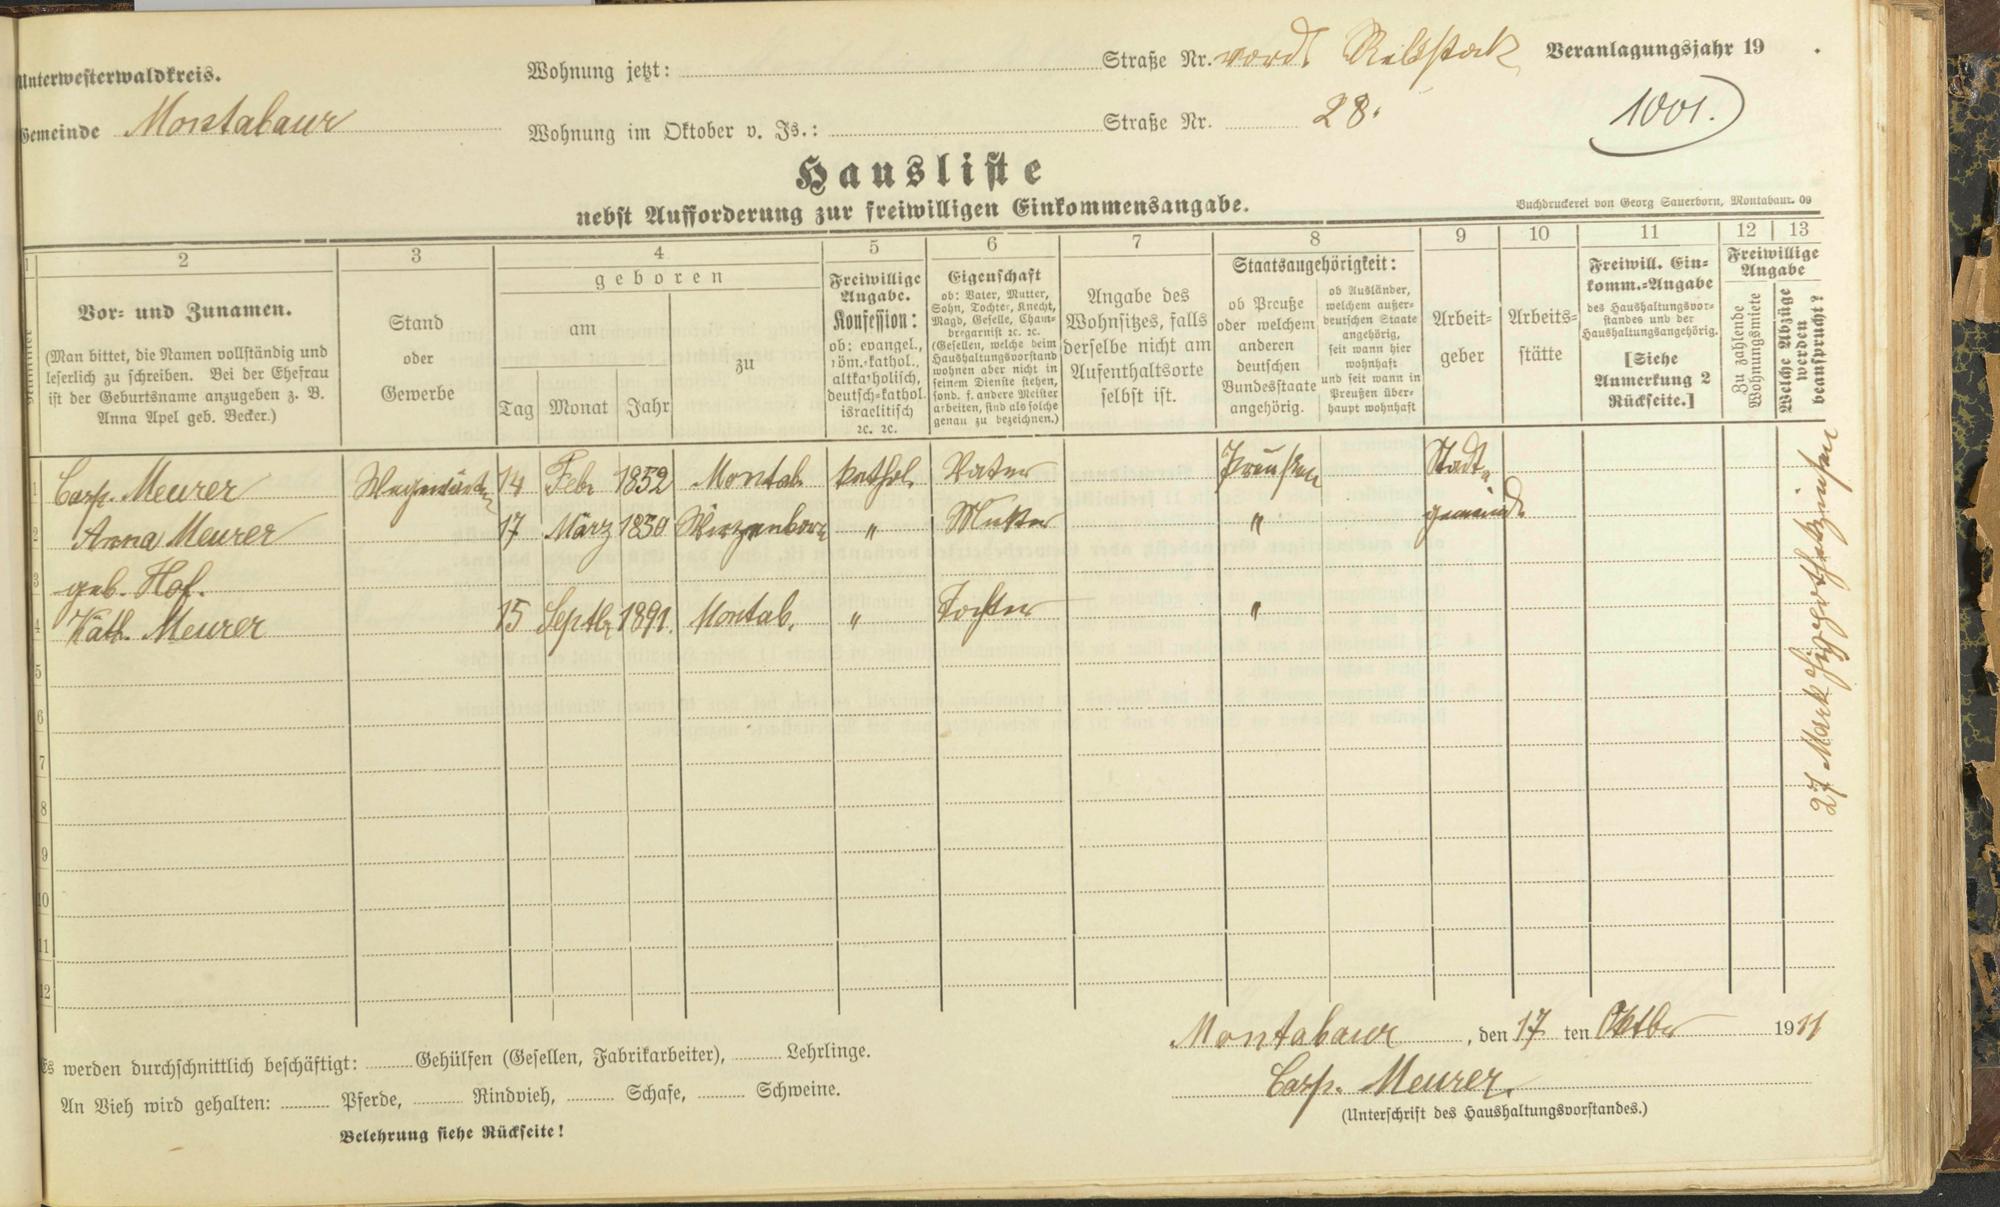 Unterwesterwaldkreis.
Wohnung jetzt: Straße Nr. vord. Rebstock
Veranlagungsjahr 19 .
Gemeinde Montabaur
Wohnung im Oktober v. Js.: Straße Nr. 28.
1001.
Hausliste
nebst Aufforderung zur freiwilligen Einkommensangabe.
Buchdruckerei von Georg Sauerborn, Montabaur. 09
1 2 3 4 5 6 7 8 9 10 11 12 13
Nummer
Vor- und Zunamen.
(Man bittet, die Namen vollständig und
leserlich zu schreiben. Bei der Ehefrau
ist der Geburtsname anzugeben z. B.
Anna Apel geb. Becker.)
Stand
oder
Gewerbe
geboren
am
Tag Monat Jahr
zu
Freiwillige
Angabe.
Konfession:
ob: evangel.,
röm.-kathol.,
altkatholisch,
deutsch-kathol.
israelitisch
ꝛc. ꝛc.
Eigenschaft
ob: Vater, Mutter,
Sohn, Tochter, Knecht,
Magd, Geselle, Cham-
bregarnist ꝛc. ꝛc.
(Gesellen, welche beim
Haushaltungsvorstand
wohnen aber nicht in
seinem Dienste stehen,
sond. f. andere Meister
arbeiten, sind als solche
genau zu bezeichnen.)
Angabe des
Wohnsitzes, falls
derselbe nicht am
Aufenthaltsorte
selbst ist.
Staatsangehörigkeit:
ob Preuße
oder welchem
anderen
deutschen
Bundesstaate
angehörig.
ob Ausländer,
welchem außer-
deutschen Staate
angehörig,
seit wann hier
wohnhaft
und seit wann in
Preußen über-
haupt wohnhaft
Arbeit-
geber
Arbeits-
stätte
Freiwill. Ein-
komm.-Angabe
des Haushaltungsvor-
standes und der
Haushaltungsangehörig.
[Siehe
Anmerkung 2
Rückseite.]
Freiwillige
Angabe
Zu zahlende
Wohnungsmiete
Welche Abzüge
werden
beansprucht?
1 Casp. Meurer Wegewärter 14 Febr 1852 Montab. kathol. Vater Preußen Stadt-
2 Anna Meurer 17 März 1850 Wirzenborn " Mutter " gemeinde
3 geb. Hof.
4 Käth. Meurer 15 Septbr 1891. Montab. " Tochter "
5
6
7
8
9
10
11
12
27 Mark Hypothekzinsen
Montabaur, den 17 ten Oktbr 1911
Casp. Meurer.
(Unterschrift des Haushaltungsvorstandes.)
Es werden durchschnittlich beschäftigt: Gehülfen (Gesellen, Fabrikarbeiter), Lehrlinge.
An Vieh wird gehalten: Pferde, Rindvieh, Schafe, Schweine.
Belehrung siehe Rückseite!